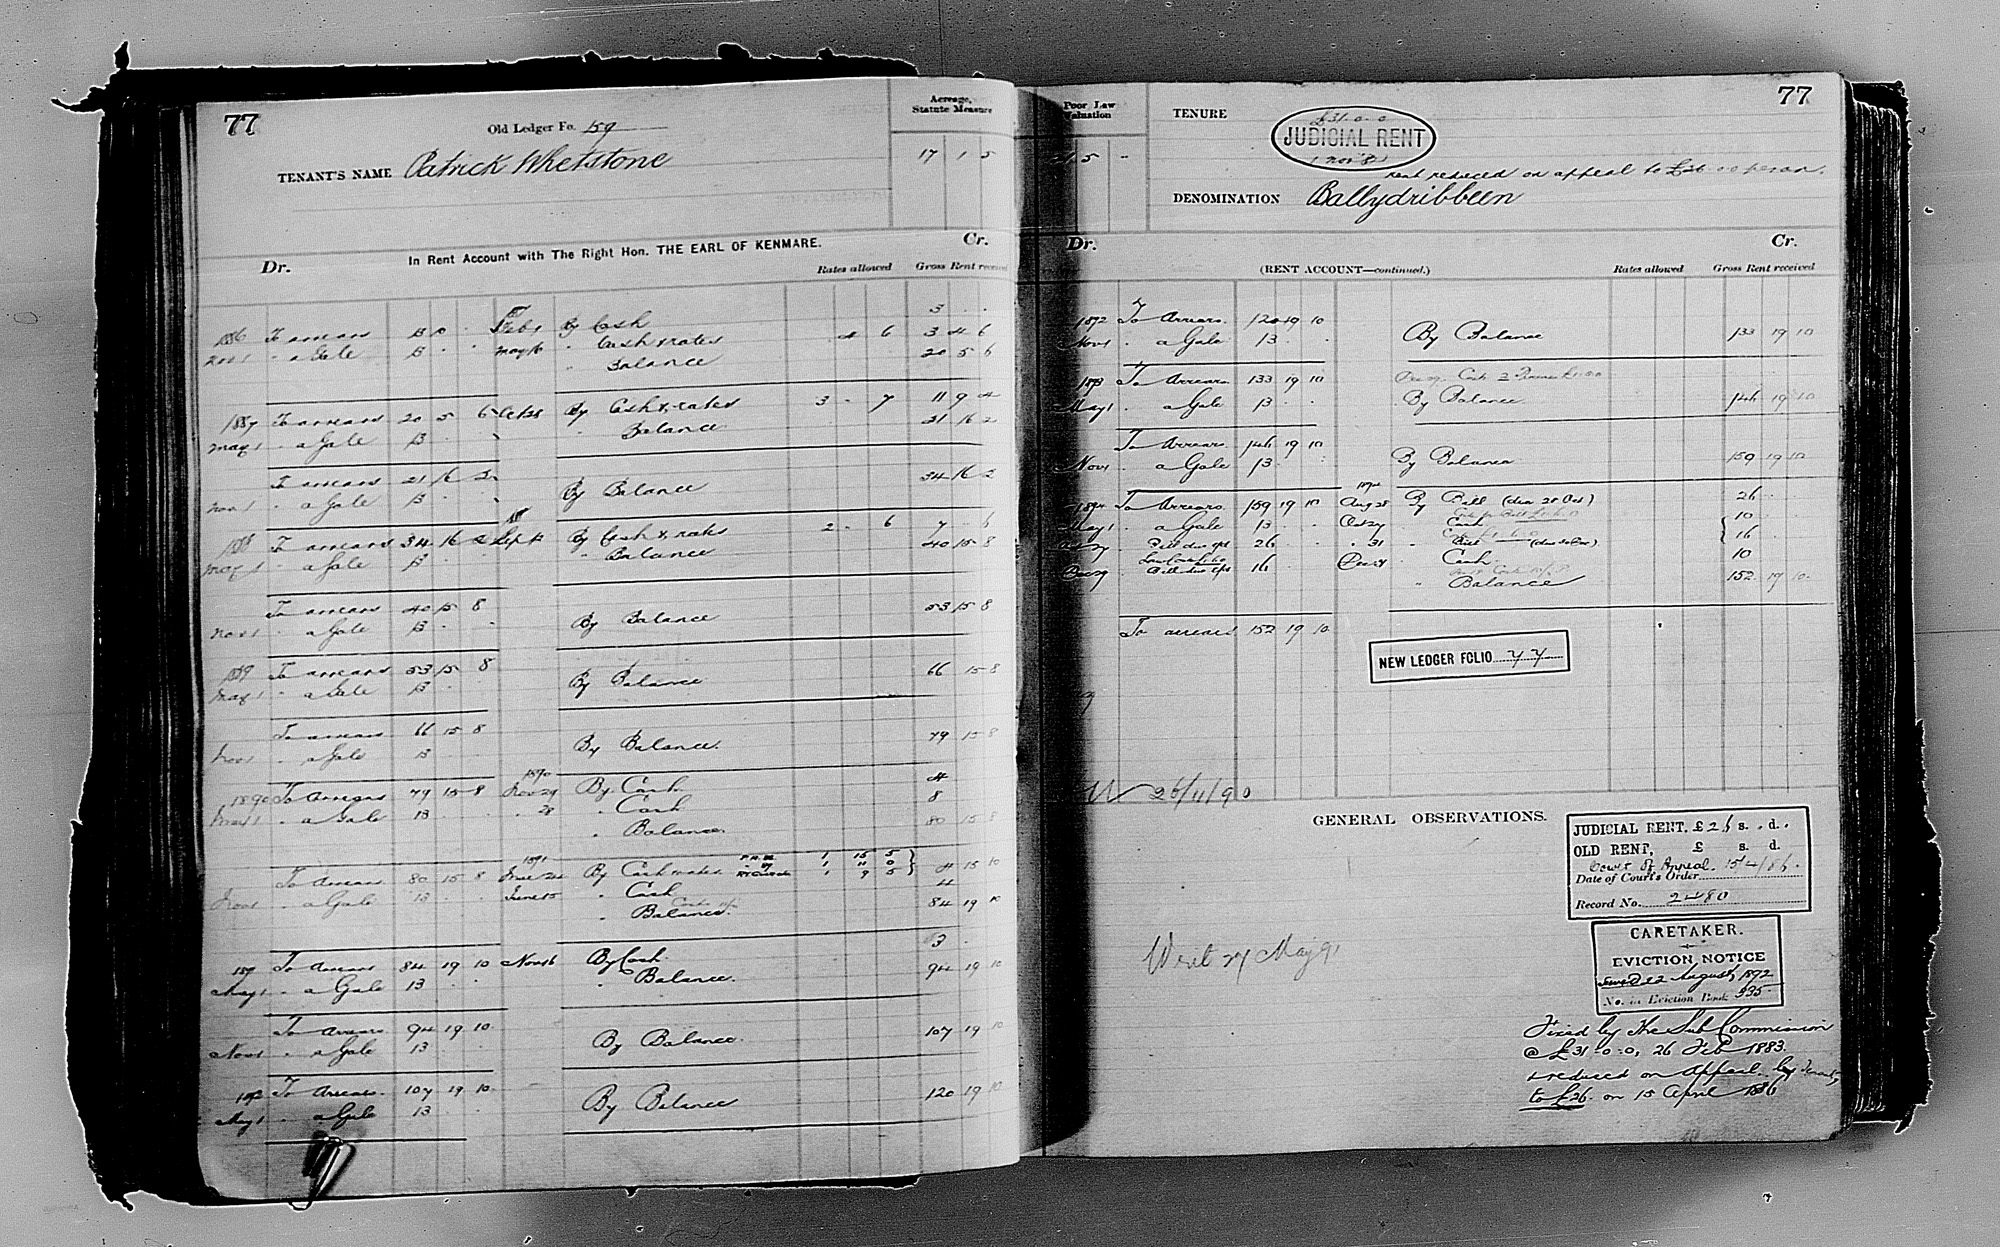 77
Old Ledger Fo. 159
Acreage, Statute Measure
TENANT'S NAME Patrick Whetstone
17 1 5
In Rent Account with The Right Hon. THE EARL OF KENMARE.
Dr. Cr.
Rates allowed Gross Rent received
3 . .
1886 To arrears 13 0 . Feb 1 By Cash
Nov 1 " a Gale 13 . . May 16 " Cash & rates 4 6 3 4 6
" Balance 20 5 6
1887 To arrears 20 5 6 Oct 28 By Cash & rates 3 - 7 11 9 4
May 1 " a Gale 13 . . " Balance 21 16 2
To arrears 21 16 2
Nov 1 " a Gale 13 . . By Balance 34 16 2
1888 To arrears 34 16 2 Sept By Cash & rates 2 - 6 7 - 6
May 1 " a Gale 13 " Balance 40 15 8
To arrears 40 15 8
Nov 1 " a Gale 13 . . By Balance 53 15 8
1889 To arrears 53 15 8
May 1 " a Gale 13 . . By Balance 66 15 8
To arrears 66 15 8
Nov 1 " a Gale 13 By Balance. 79 15 8
1890
1890 To Arrears 79 15 8 Nov 24 By Cash 4
May 1 " a Gale 13 . . " 28 " Cash 8
" Balance. 80 15 8
1891
To Arrears 80 15 8 By Cash & rates 1 15 5
1 11 0
1 9 5 4 15 10
Nov 1 " a Gale 13 . . June 15 " Cash 4
" Balance. 84 19 10
3 .
To Arrears 84 19 10 Nov 16 By Cash.
May 1 " a Gale 13 . . " Balance. 94 19 10
To Arrears 94 19 10
Nov 1 " a Gale 13 . . By Balance. 107 19 10
1892 To Arrears. 107 19 10
May 1 " a Gale 13 . . By Balance 120 19 10
77
Poor Law Valuation
TENURE
£31-0-0
JUDICIAL RENT
21 5 "
rent reduced on appeal to £26.0.0 per an.
DENOMINATION Ballydribbeen
Dr. Cr.
(RENT ACCOUNT—continued.) Rates allowed Gross Rent received
1892 To Arrears. 120 19 10
Nov 1 " a Gale 13 . . By Balance 133 19 10
1893 To Arrears 133 19 10
May 1 " a Gale 13 . . By Balance 146 19 10
To Arrears 146 19 10
Nov 1 " a Gale 13 . . By Balance 159 19 10
1894
1894 To Arrears 159 19 10 Aug 28 By Bill (due 28 Oct) 26
May 1 " a Gale 13 . . Oct 27 " Cash 10
Bill due 26 . . " 31 " Bill (due 30 Dec) 16
Dec 29 16 Dec 29 Cash 10
" Balance 152 19 10
To arrears 152 19 10
NEW LEDGER FOLIO 77
26/11/90
GENERAL OBSERVATIONS.
JUDICIAL RENT, £26 s. d.
OLD RENT, £ s. d.
Court of Appeal. 15/4/86.
Date of Court's Order
Record No. 2480
CARETAKER.
EVICTION NOTICE
Served 2 August, 1892
No. in Eviction Book 335
Writ 27 May 91
Fixed by the Sub Commission
@ £31-0-0, 26 Feb 1883.
& reduced on Appeal by Tenant,
to £26. on 15 April 1886